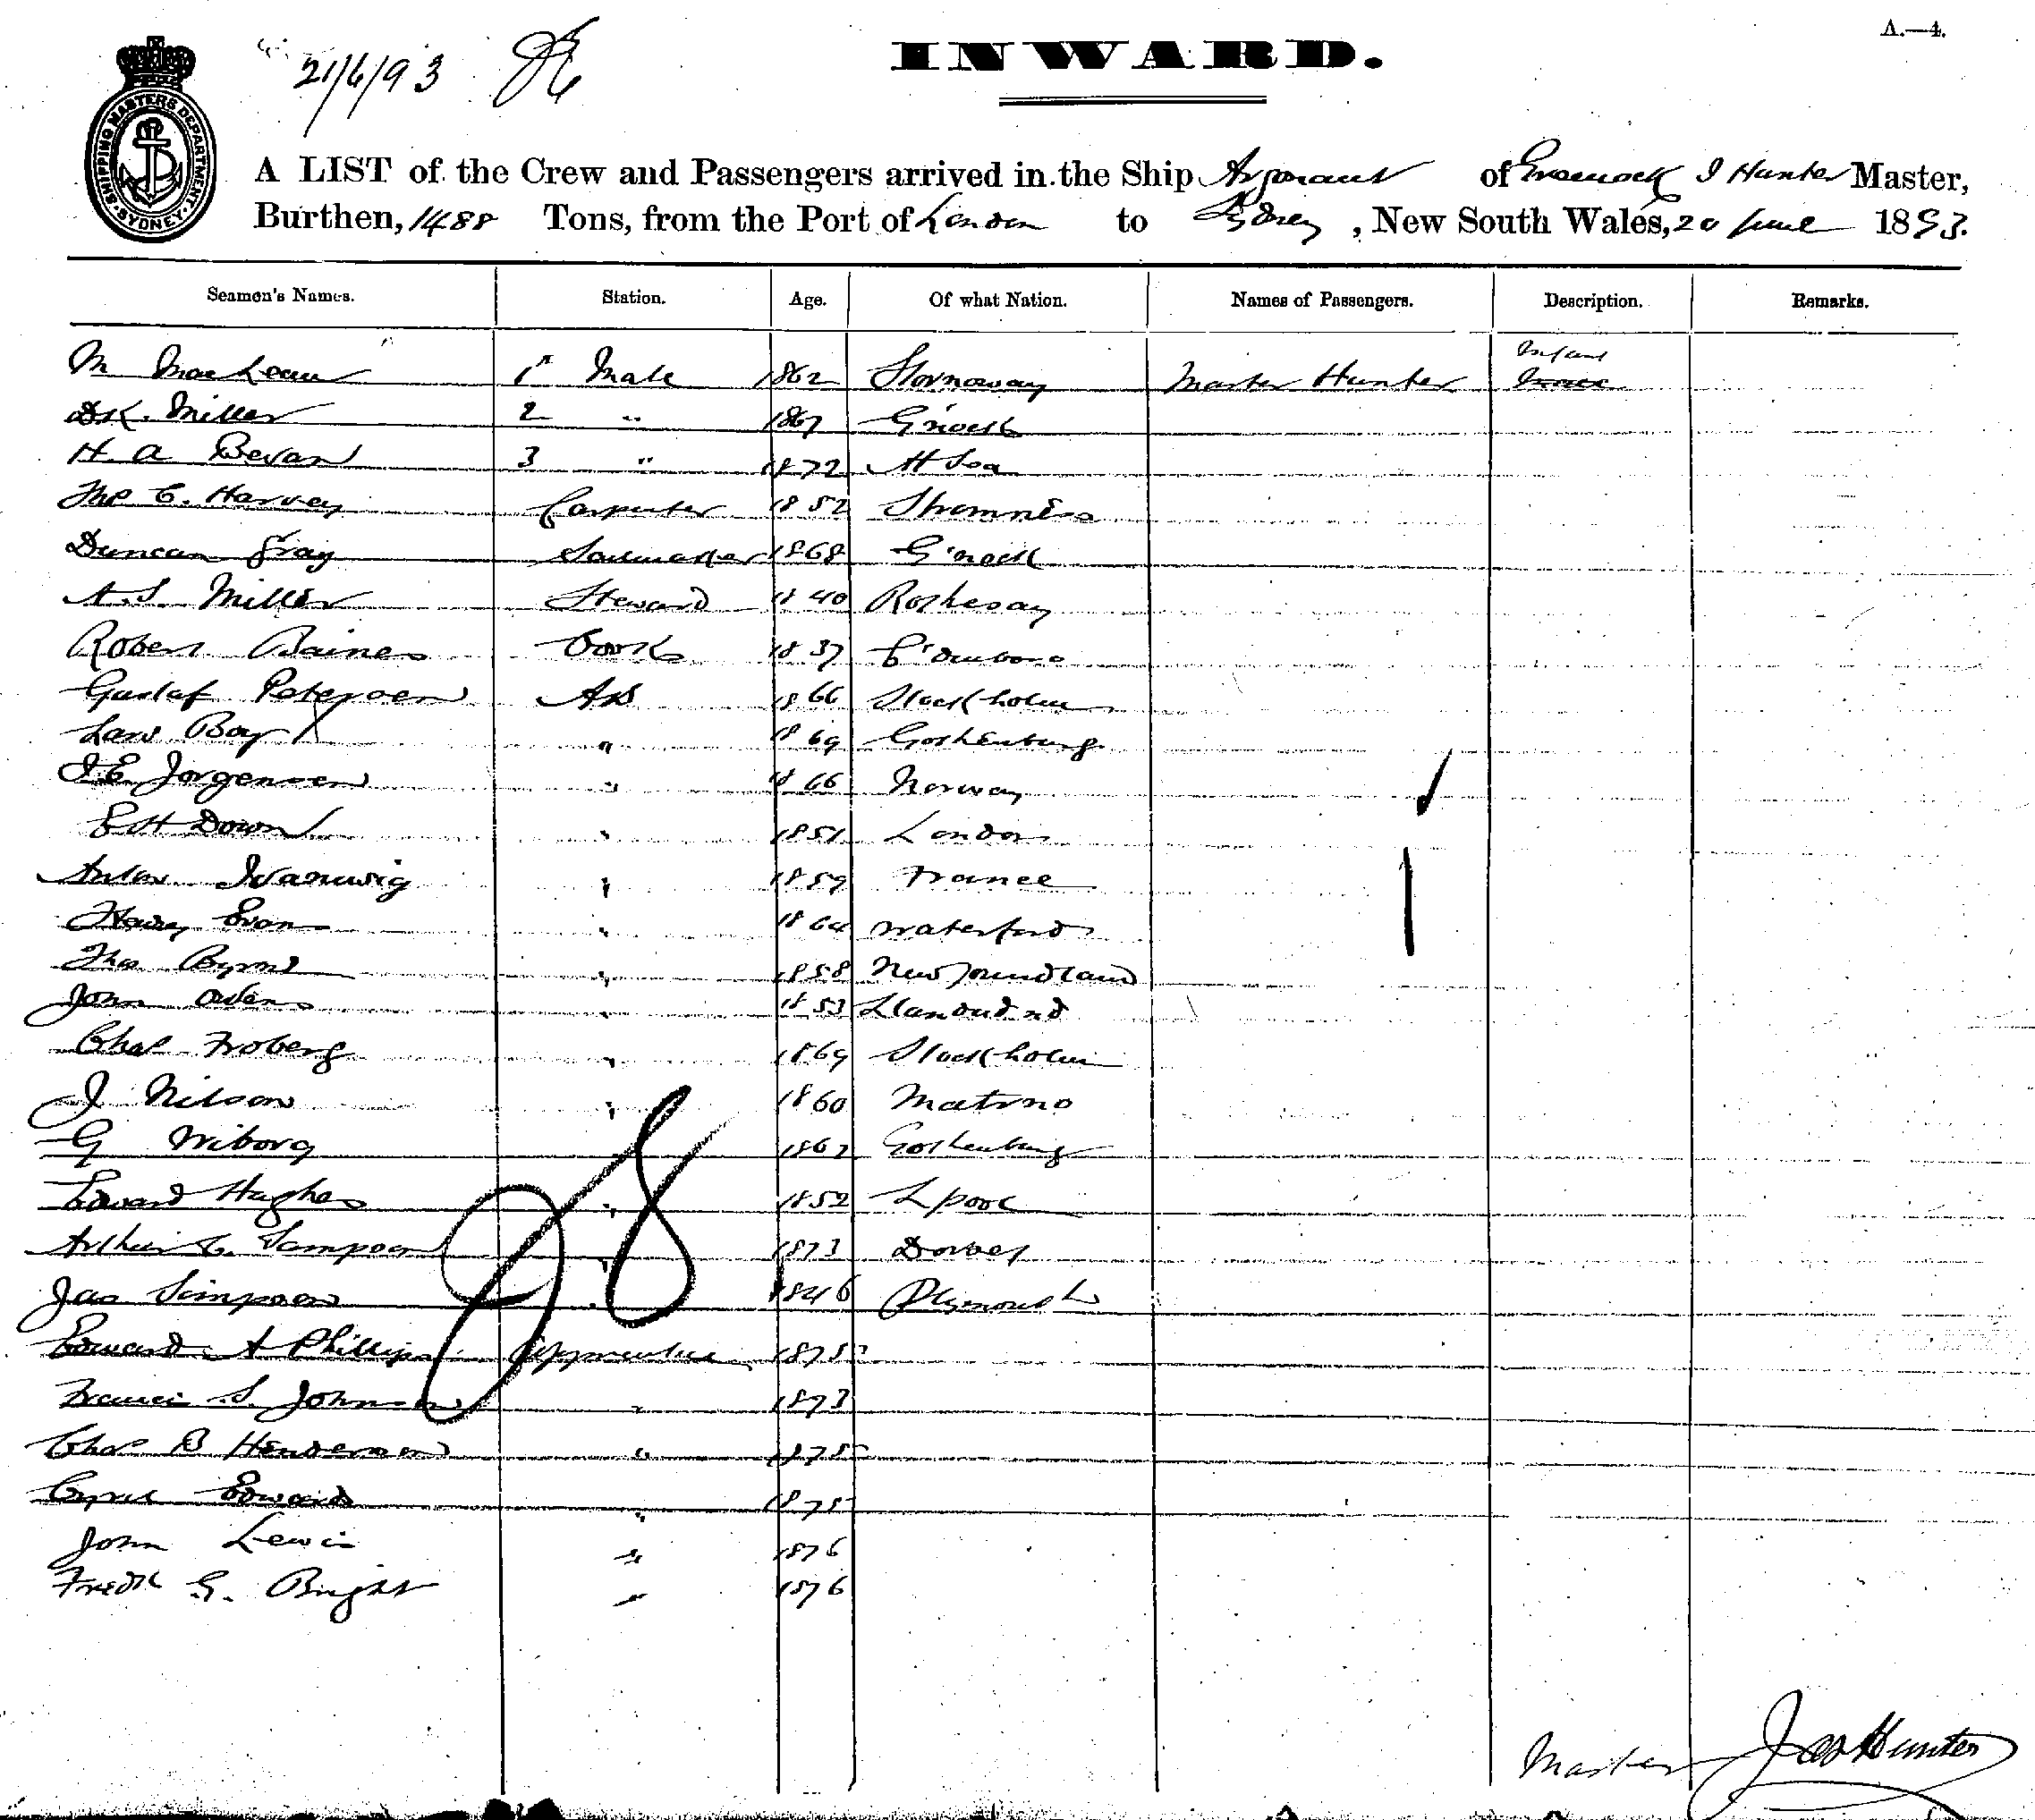 A.—4.
21/6/93
INWARD.
SHIPPING MASTERS DEPARTMENT. SYDNEY.
A LIST of the Crew and Passengers arrived in the Ship Argonaut of Greenock J Hunter Master,
Burthen, 1488 Tons, from the Port of London to Sydney, New South Wales, 20 June 1893.
Seamen's Names. Station. Age. Of what Nation. Names of Passengers. Description. Remarks.
Infant
M MacLean 1st Mate 1862 Stornoway Master Hunter
D.K. Miller 2 " 1867 G'nock
H. A Bevan 3 " 1872 At Sea
Thos C. Harvey Carpenter 1852 Stromness
Duncan Gray Sailmaker 1868 G'nock
A.S. Miller Steward 1840 Rothesay
Robert Baines Cook 1837
Gustaf Petersen AB 1866 Stockholm
Lars Boy X " 1869 Gothenburg
J.E. Jorgensen " 1866 Norway
E H Down " 1851 London
Anton " 1859 France
Evan " 1864 Waterford
Thos Byrne " 1858 Newfoundland
John Owens " 1853 Llandudno
Chas Froberg " 1869 Stockholm
J Nilson " 1860
G Wiborg " 1862 Gothenburg
Edward Hughes " 1852 Lpool
Arthur C. Sampson " 1873
Jas Simpson " 1846 Plymouth
Edward A Phillips Apprentice 1875
Francis S. Johnson " 1873
Chas B Henderson " 1875
Cyril Edwards " 1875
John Lewis " 1876
Fredk G. Bright " 1876
28
Master Jas Hunter